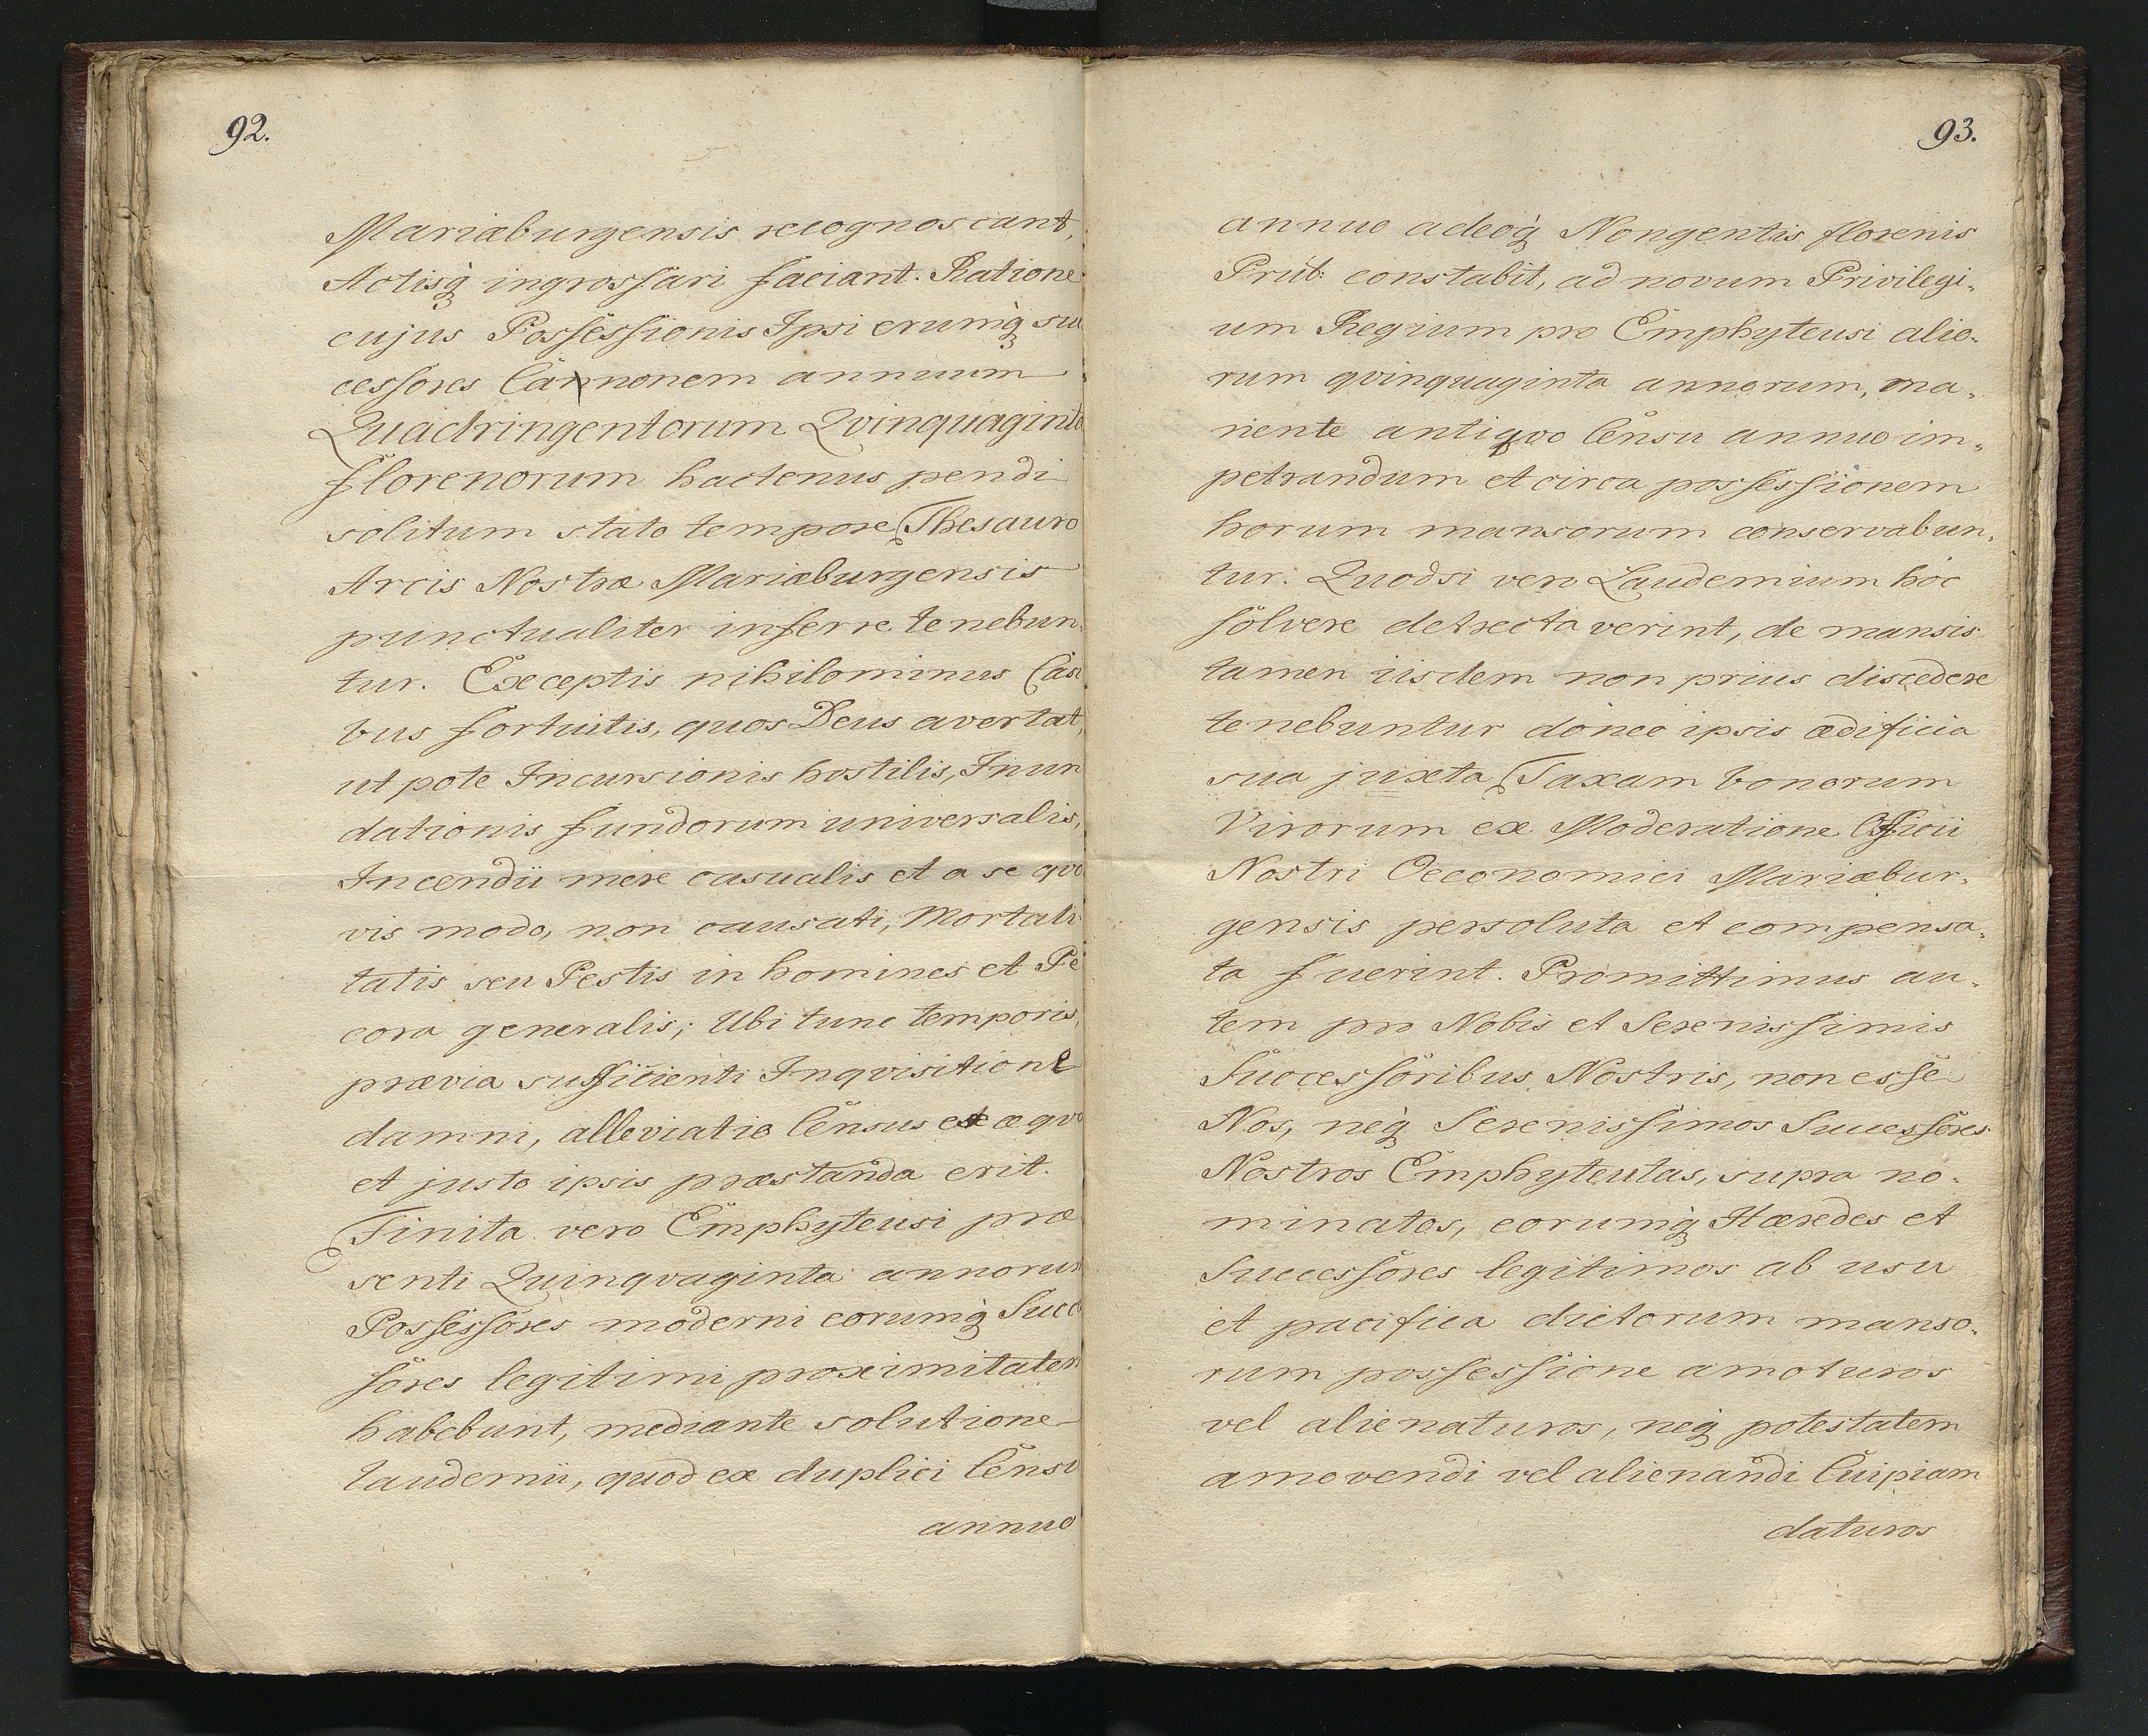 92.
Mariæburgensis recognoscant,
Actisq̀ ingrossari faciant. Ratione
cujus Possessionis Ipsi erumq̀ suc
cessores Cannonem annuum
Quadringentorum Qvinquaginta
florenorum hactenus pendi
solitum stato tempore Thesauro
Arcis Nostræ Mariæburgensis
punctualiter inferre tenebun,
tur. Exceptis nihilominus Casi
bus fortuitis, quos Deus avertat,
ut pote Incursionis hostilis, Inun
dationis fundorum universalis,
Incendii mere casualis et a se qvo
vis modo, non causati, Mortali
tatis seu Pestis in homines et Pe
cora generalis; Ubi tunc temporis,
prævia sufficienti Inqvisitione
damni, alleviatio Census ex æqvo
et justo ipsis præstanda erit.
Finita vero Emphyteusi præ
senti Quinqvaginta annorum
Possessores moderni eorumq̀ Succes
sores legitimi proximitatem
habebunt, mediante solutione
laudemii, quod ex duplici Censu
annuo
93.
annuo adeoq̀ Nongentis florenis
Prut: constabit, ad novum Privilegi„
um Regium pro Emphyteusi alio„
rum qvinquaginta annorum, ma„
nente antiqvo Censu annuo im„
petrandum et circa possessionem
horum mansorum conservabun„
tur. Quodsi vero Laudemium hoc
solvere detrectaverint, de mansis
tamen iisdem non prius discedere
tenebuntur donec ipsis ædificia
sua juxta Taxam bonorum
Virorum ex Moderatione Officii
Nostri Oeconomici Mariæbur„
gensis persoluta et compensa„
ta fuerint. Promittimus au„
tem pro Nobis et Serenissimis
Successoribus Nostris, non esse
Nos, neq̀ Serenissimos Successores
Nostros Emphyteutas, supra no„
minatos, eorumq̀ Hæredes et
Successores legitimos ab usu
et pacifica dictorum manso„
rum possessione amoturos
vel alienaturos, neq̀ potestatem
amovendi vel alienandi Cuipiam
daturos